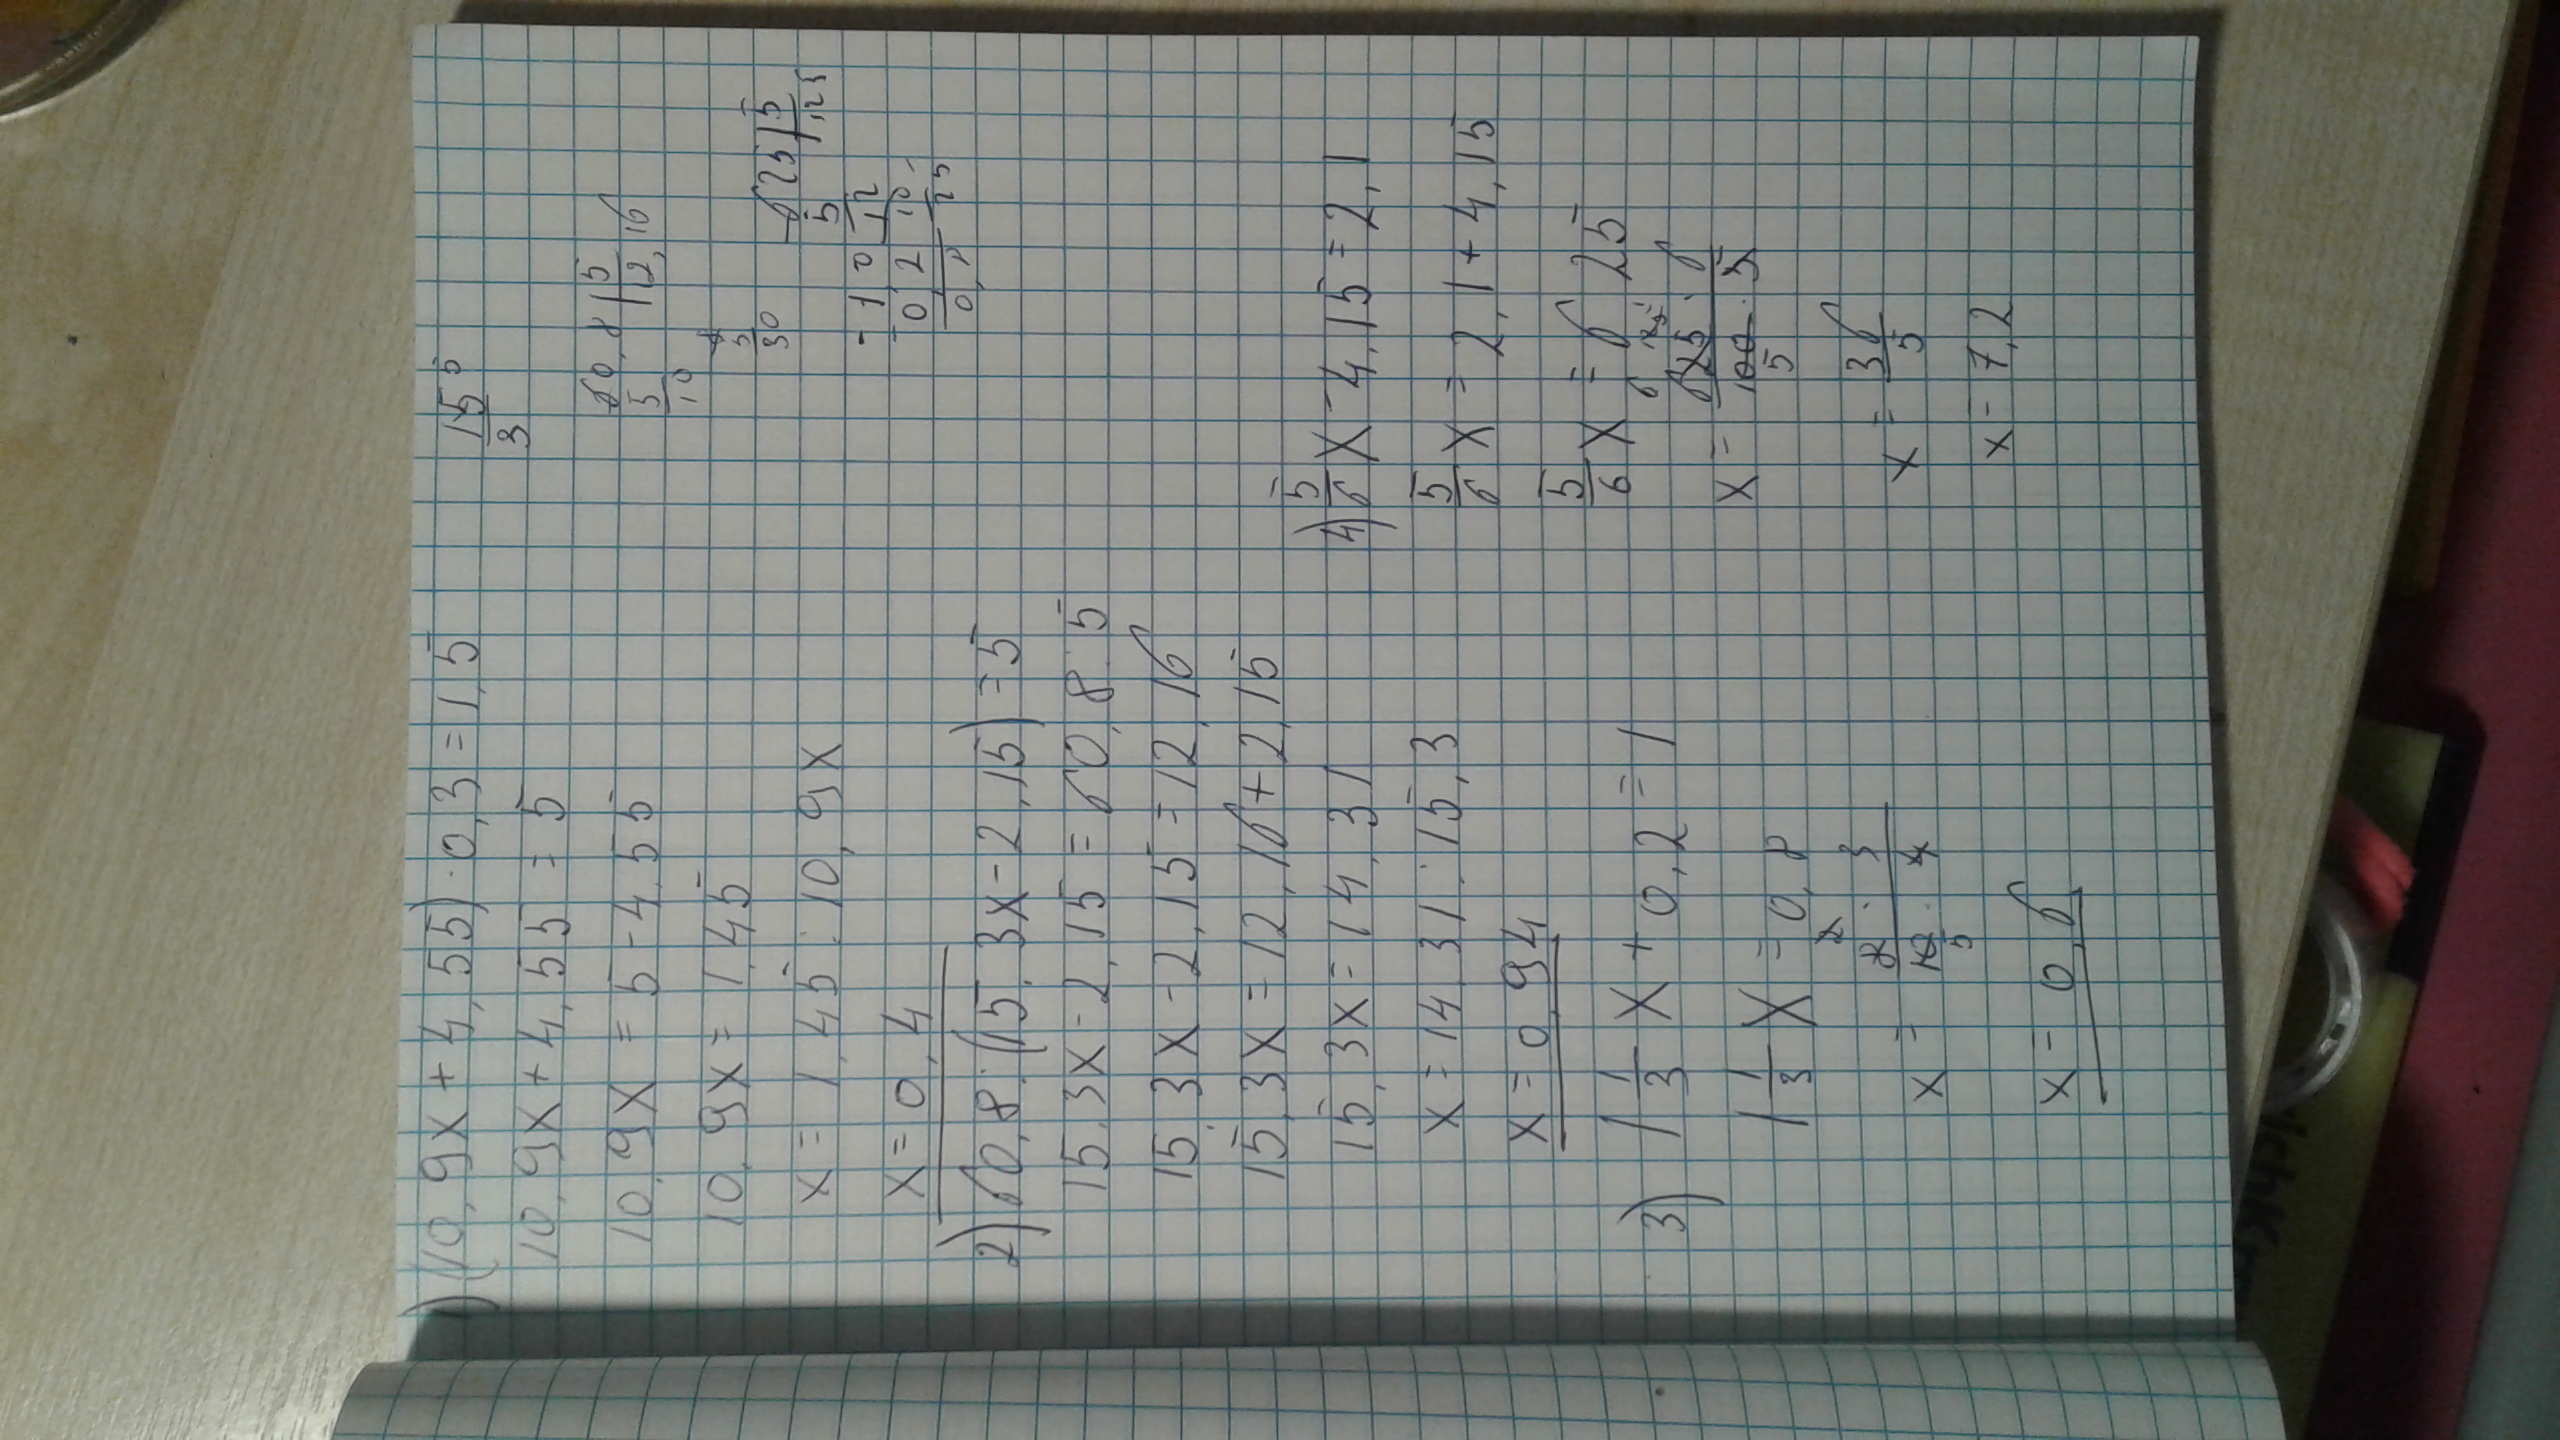 1) (10,9x + 4,55) · 0,3 = 1,5
10,9x + 4,55 = 5
10,9x = 5 - 4,55
10,9x = 1,45
x = 1,45 : 10,9x
x = 0,4
2) 60,8 : (15,3x - 2,15) = 5
15,3x - 2,15 = 60,8 : 5
15,3x - 2,15 = 12,16
15,3x = 12,16 + 2,15
15,3x = 14,31
x = 14,31 : 15,3
x = 0,94
3) 1 1/3 x + 0,2 = 1
1 1/3 x = 0,8
x = 8 · 3 / 10 · 4
2
5
x = 0,6
15 / 3
5
60,8 | 5
5
12,16
10
30
625 | 5
5
12
10
25
4) 5/6 x - 4,15 = 2,1
5/6 x = 2,1 + 4,15
5/6 x = 6,25
x = 625 · 6 / 100 · 5
5
x = 36 / 5
x = 7,2